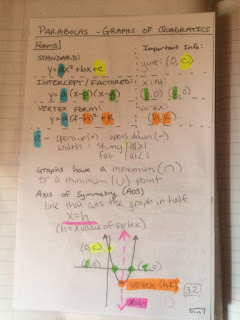 PARABOLAS - GRAPHS OF QUADRATICS
Forms
Important Info:
STANDARD:
y = ax² + bx + c
y-int: (0, c)
INTERCEPT / FACTORED:
x-int
y = a(x-p)(x-q)
(p, 0) (q, 0)
VERTEX FORM:
vertex:
y = a(x-h)² + k
(h, k)
a - opens up (+) opens down (-)
width: skinny |a|>1
fat |a|<1
Graphs have a maximum (∩)
or a minimum (∪) point
Axis of Symmetry (AOS)
line that cuts the graph in half
x=h
(h = x value of vertex)
(0, c)
(p, 0)
(q, 0)
vertex (h, k)
x=h
32